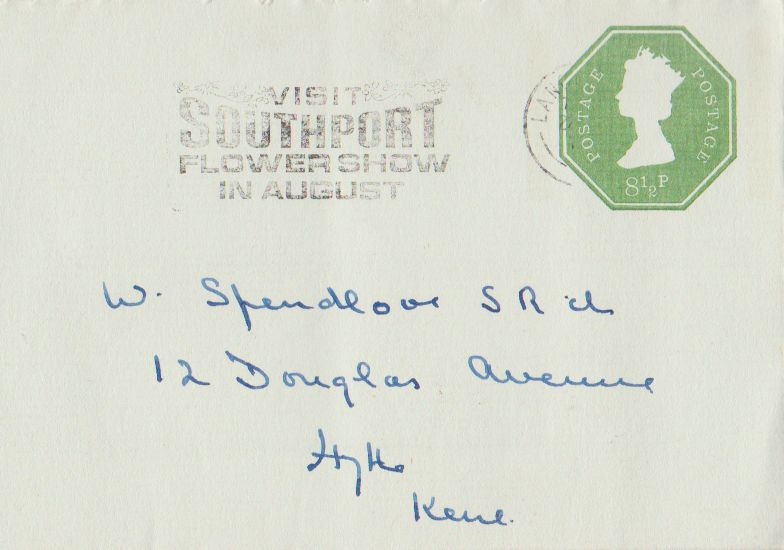 VISIT
SOUTHPORT
FLOWER SHOW
IN AUGUST
LAN
POSTAGE
POSTAGE
8½P
W. Spendlove SRCh
12 Douglas Avenue
Hythe
Kent.